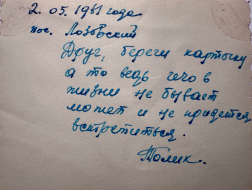 2. 05. 1981 года
пос. Лозовский
Друг, береги карточку
а то ведь чего в
жизни не бывает
может и не придется
встретиться.
Толик.